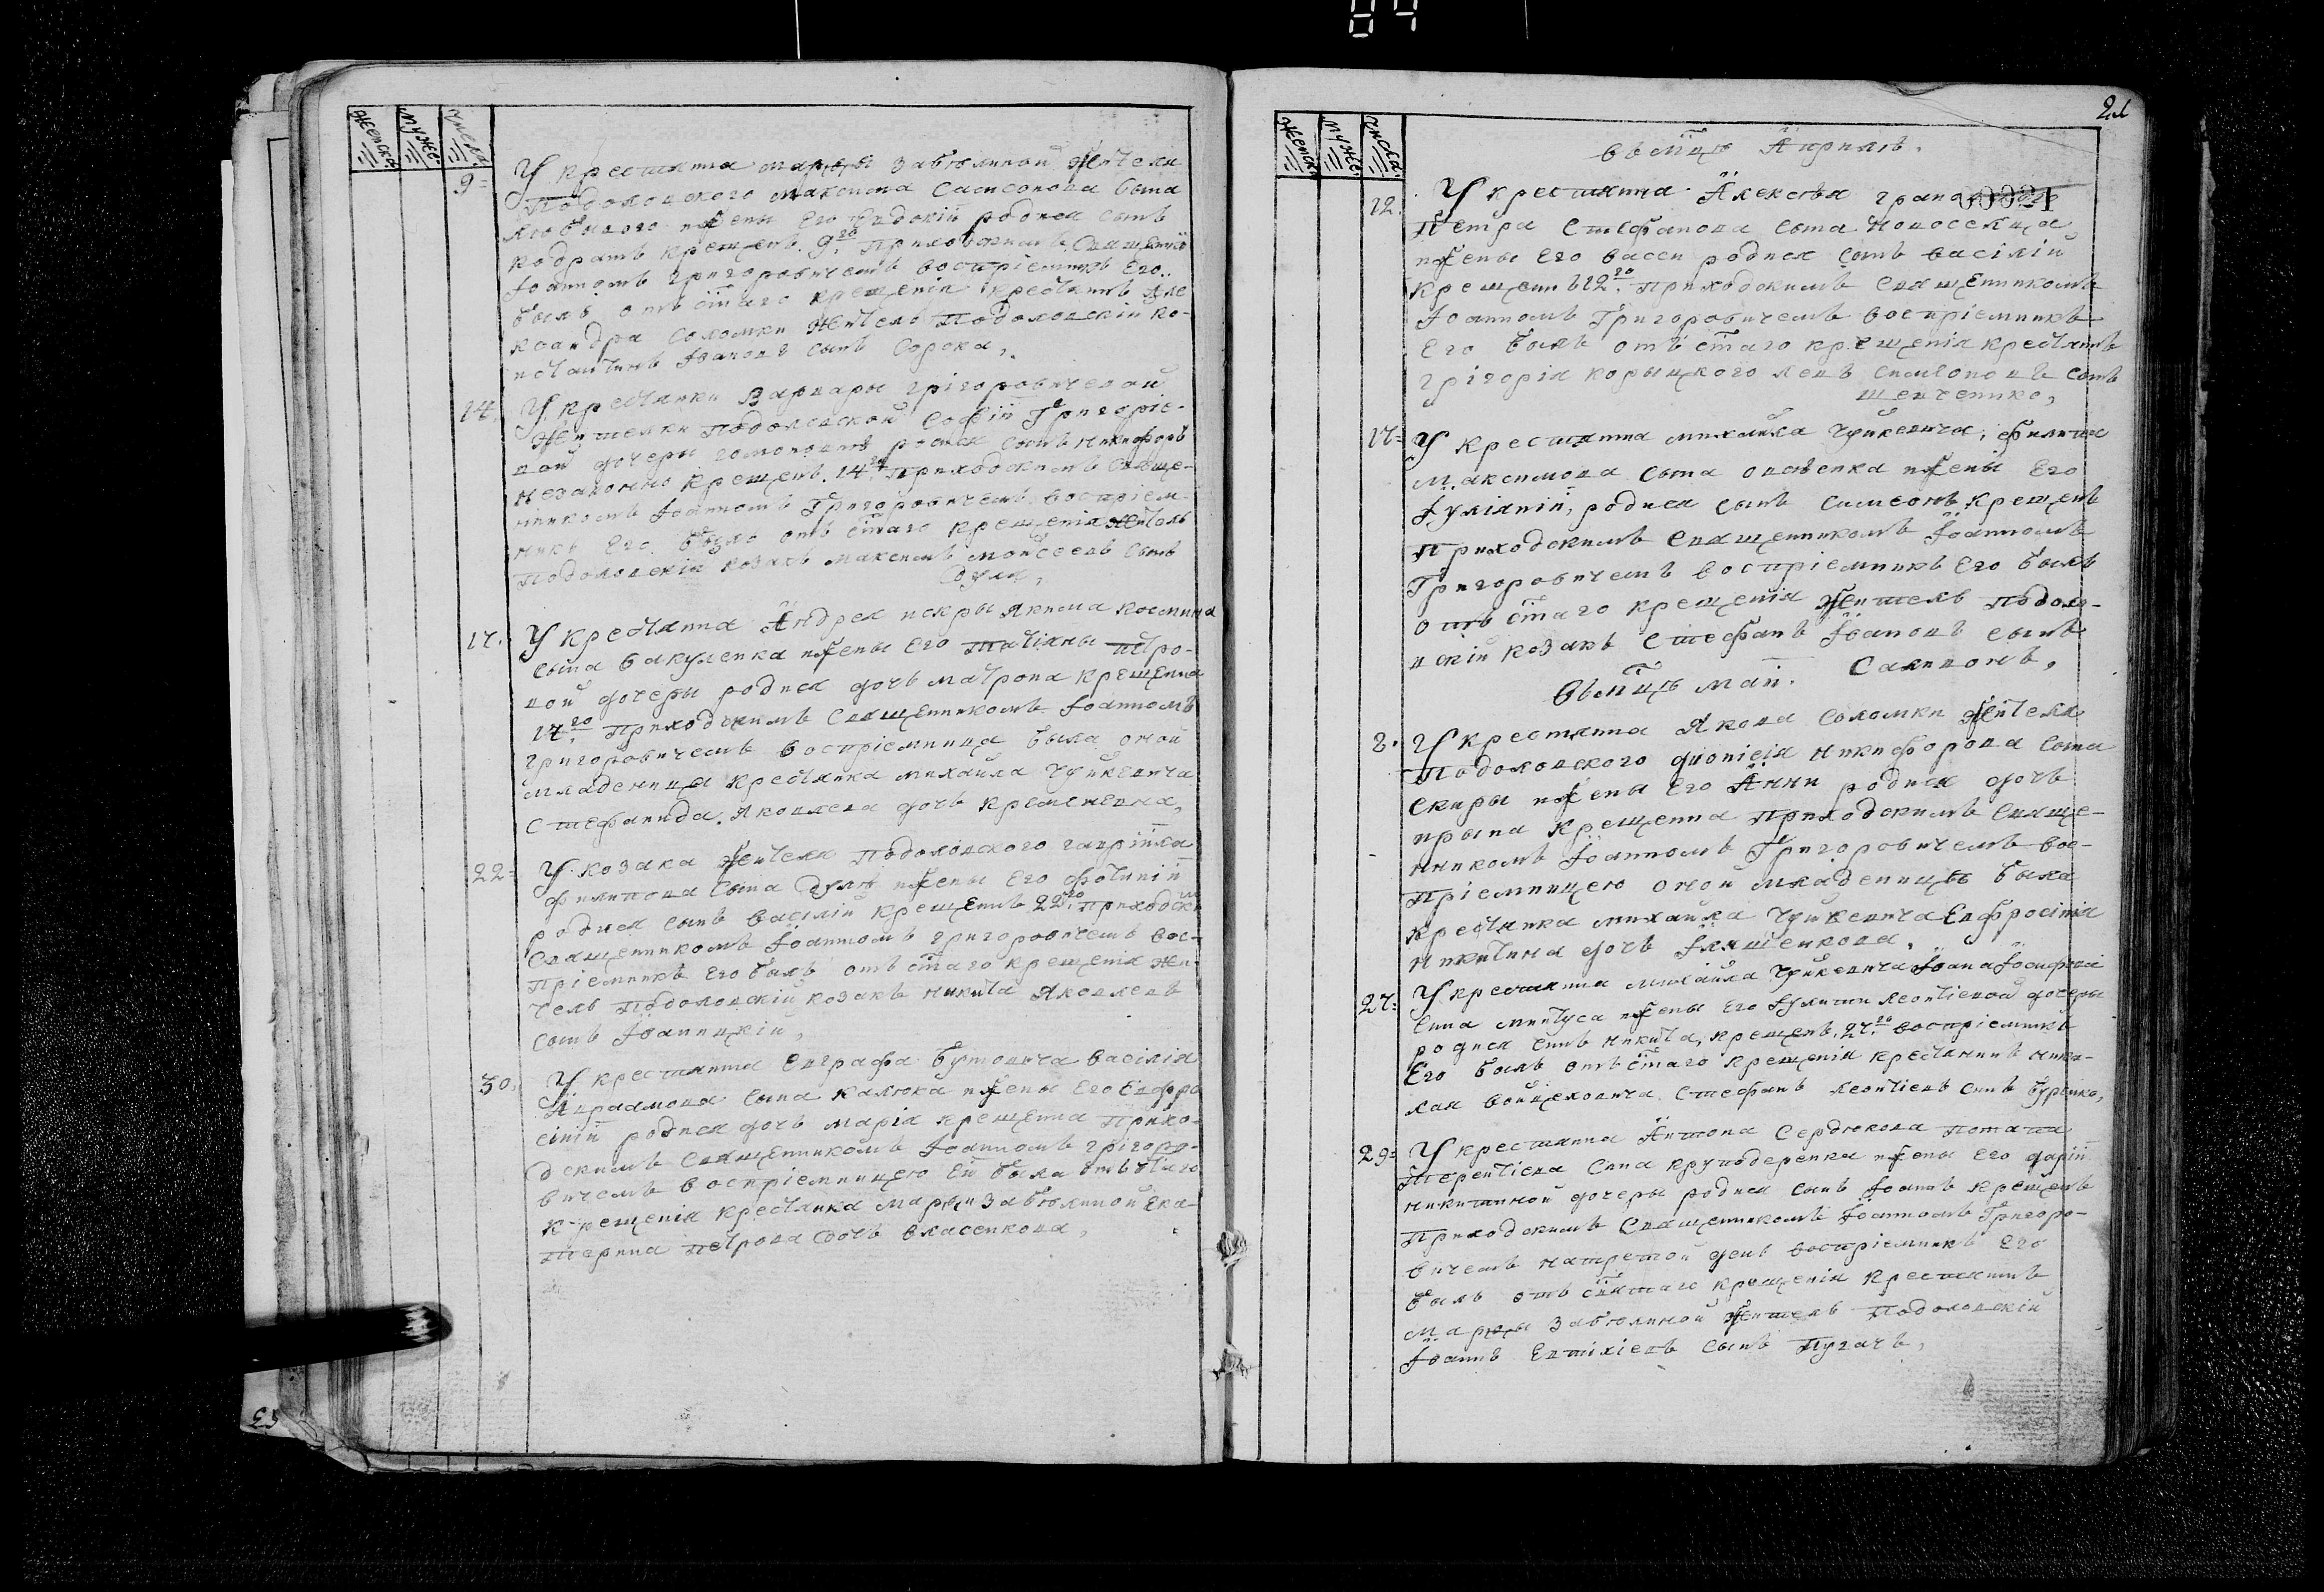 женска
муже
числа
9
У крестянина марфы забюлиной жителя
Подоловского максима Самсонова сына
жены Его Евдокіи родися сынъ
кодратъ крещенъ 9го Приходскимъ Священико
Іоанномъ Григоровичемъ воспріемникъ Его
былъ отъ стаго крещенія крестянинъ Але
ксандра Соломки житель Подоловскій ко-
нстантинъ Іоановъ сынъ Сорока,
14
У крестянки Варвары Грігоровичевой
жителки Подоловской Софіи Григоріе-
вой дочеры родися сынъ никифоръ
незаконно крещенъ 14го Приходскимъ Свяще-
нникомъ Іоанномъ Григоровичемъ воспріем-
никъ Его было отъ стаго крещенія житель
Подоловскій козакъ максимъ мойсеевъ сынъ
Дуля,
17
У крестянина Андрея искры якима космина
сына бакуленка жены Его татіяны петро-
вой дочеры родися дочь матрона крещенна
17го Приходскимъ Священникомъ Іоанномъ
григоровичемъ воспріемница была оной
младеницы крестянка михайла Чуйкевича
Стефанида Яковлева дочь кременевна,
22
У козака жителя Подоловского гавріила
филипова сына Дуля жены Его фотиніи
родися сынъ василій крещенъ 22го приходским
Священникомъ Іоанномъ григоровичемъ вос-
пріемникъ Его былъ отъ стаго крещенія жи-
тель Подоловскій козакъ никита Яковлевъ
сынъ Іваницкій,
30
У крестянина Евграфа бутовича василія
Авраамова сына калюка жены Его Евфро
сініи родися дочь марія крещенна Прихо-
дскимъ Священникомъ Іоанномъ грігоро-
вичемъ воспріемницею Ей была отъ стаго
крещенія крестянка марфы забюлиной Ека-
терина петрова дочь власенкова,
21
женска
муже
числа
въ мцѣ Априлѣ.
00021
12
У крестянина Алексѣя
Петра Стефанова сына новоселца
жены Его васси родися сынъ василій
крещенъ 12го Приходскимъ Священникомъ
Іоанномъ Григоровичемъ воспріемникъ
Его былъ отъ стаго крещенія крестянинъ
грігорія корыцкого левъ симеоновъ сынъ
шевченко,
17
У крестянина михайла Чуйкевича, филипа
максимова сына жены Его
Іуліяніи, родися сынъ Симеонъ крещенъ
Приходскимъ Священникомъ Іоанномъ
Григоровичемъ воспріемникъ Его былъ
отъ стаго крещенія житель Подоло-
вскій козакъ Стефанъ Іоановъ сынъ
Саливонъ,
въ мцѣ маіи.
2
У крестянина Якова Соломки жителя
Подоловского діонісія никифорова сына
Скиры жены Его Анни родися дочь
ирына крещенна Приходскимъ Свяще-
нникомъ Іоанномъ Григоровичемъ вос-
пріемницею оной младеницѣ была
крестянка михайла Чуйкевича Евфросінія
никитина дочь Іляшенкова,
27
У крестянина михайла Чуйкевича Іоана Іосифова
сина жены Его Іулитти леонтіевой дочеры
родися синъ никита, крещенъ 27го воспріемникъ
Его былъ отъ стаго крещенія крестянинъ нико-
лая войцеховича Стефанъ леонтіевъ синъ буренко,
29
У крестянина Антона Сердюкова Потапа
Терентіева сина круподеренка жены Его даріи
никитиной дочеры родися сынъ Іоаннъ крещенъ
Приходскимъ Священникомъ Іоанномъ Григоро-
вичемъ натретой день воспріемникъ Его
былъ отъ святаго крещенія крестянинъ
марфы забюлиной житель Подоловскій
Іоаннъ Евтіхіевъ сынъ Пугачъ,